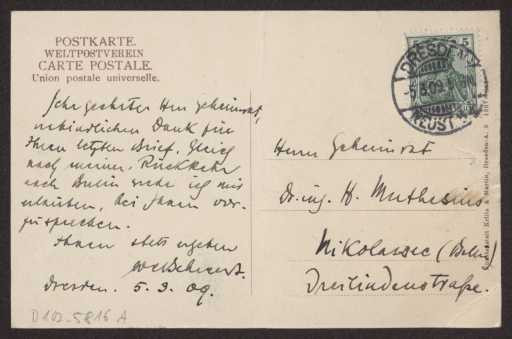 POSTKARTE.
WELTPOSTVEREIN
CARTE POSTALE.
Union postale universelle.
Sehr geehrter Herr Geheimrat,
verbindlichen Dank für
Ihren letzten Brief. Gleich
nach meiner Rückkehr
nach Berlin werde ich mir
erlauben, bei Ihnen vor-
zusprechen.
Ihnen stets ergeben
Dresden. 5. 3. 09.
D 102-5816 A
5
DRESDEN
5.3.09
NEUST.
Herrn Geheimrat
Dr. ing. H. Muthesius
Nikolassee (Berlin)
Dreilindenstraße.